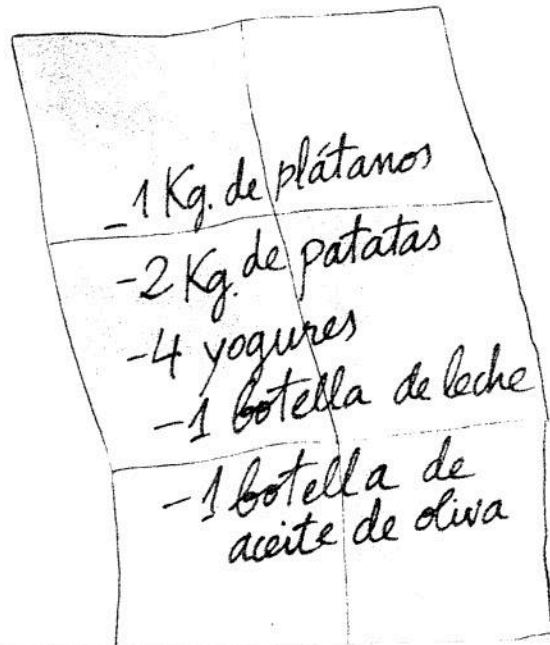 -1 Kg. de plátanos
-2 Kg. de patatas
-4 yogures
-1 botella de leche
-1 botella de
aceite de oliva